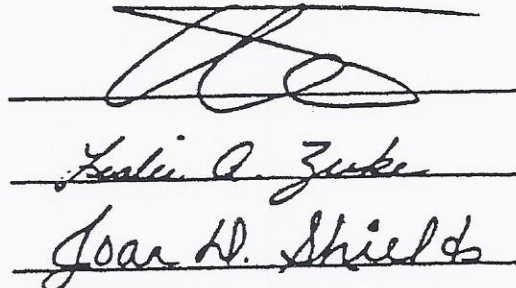 Leslie A. Zuke
Joan D. Shields